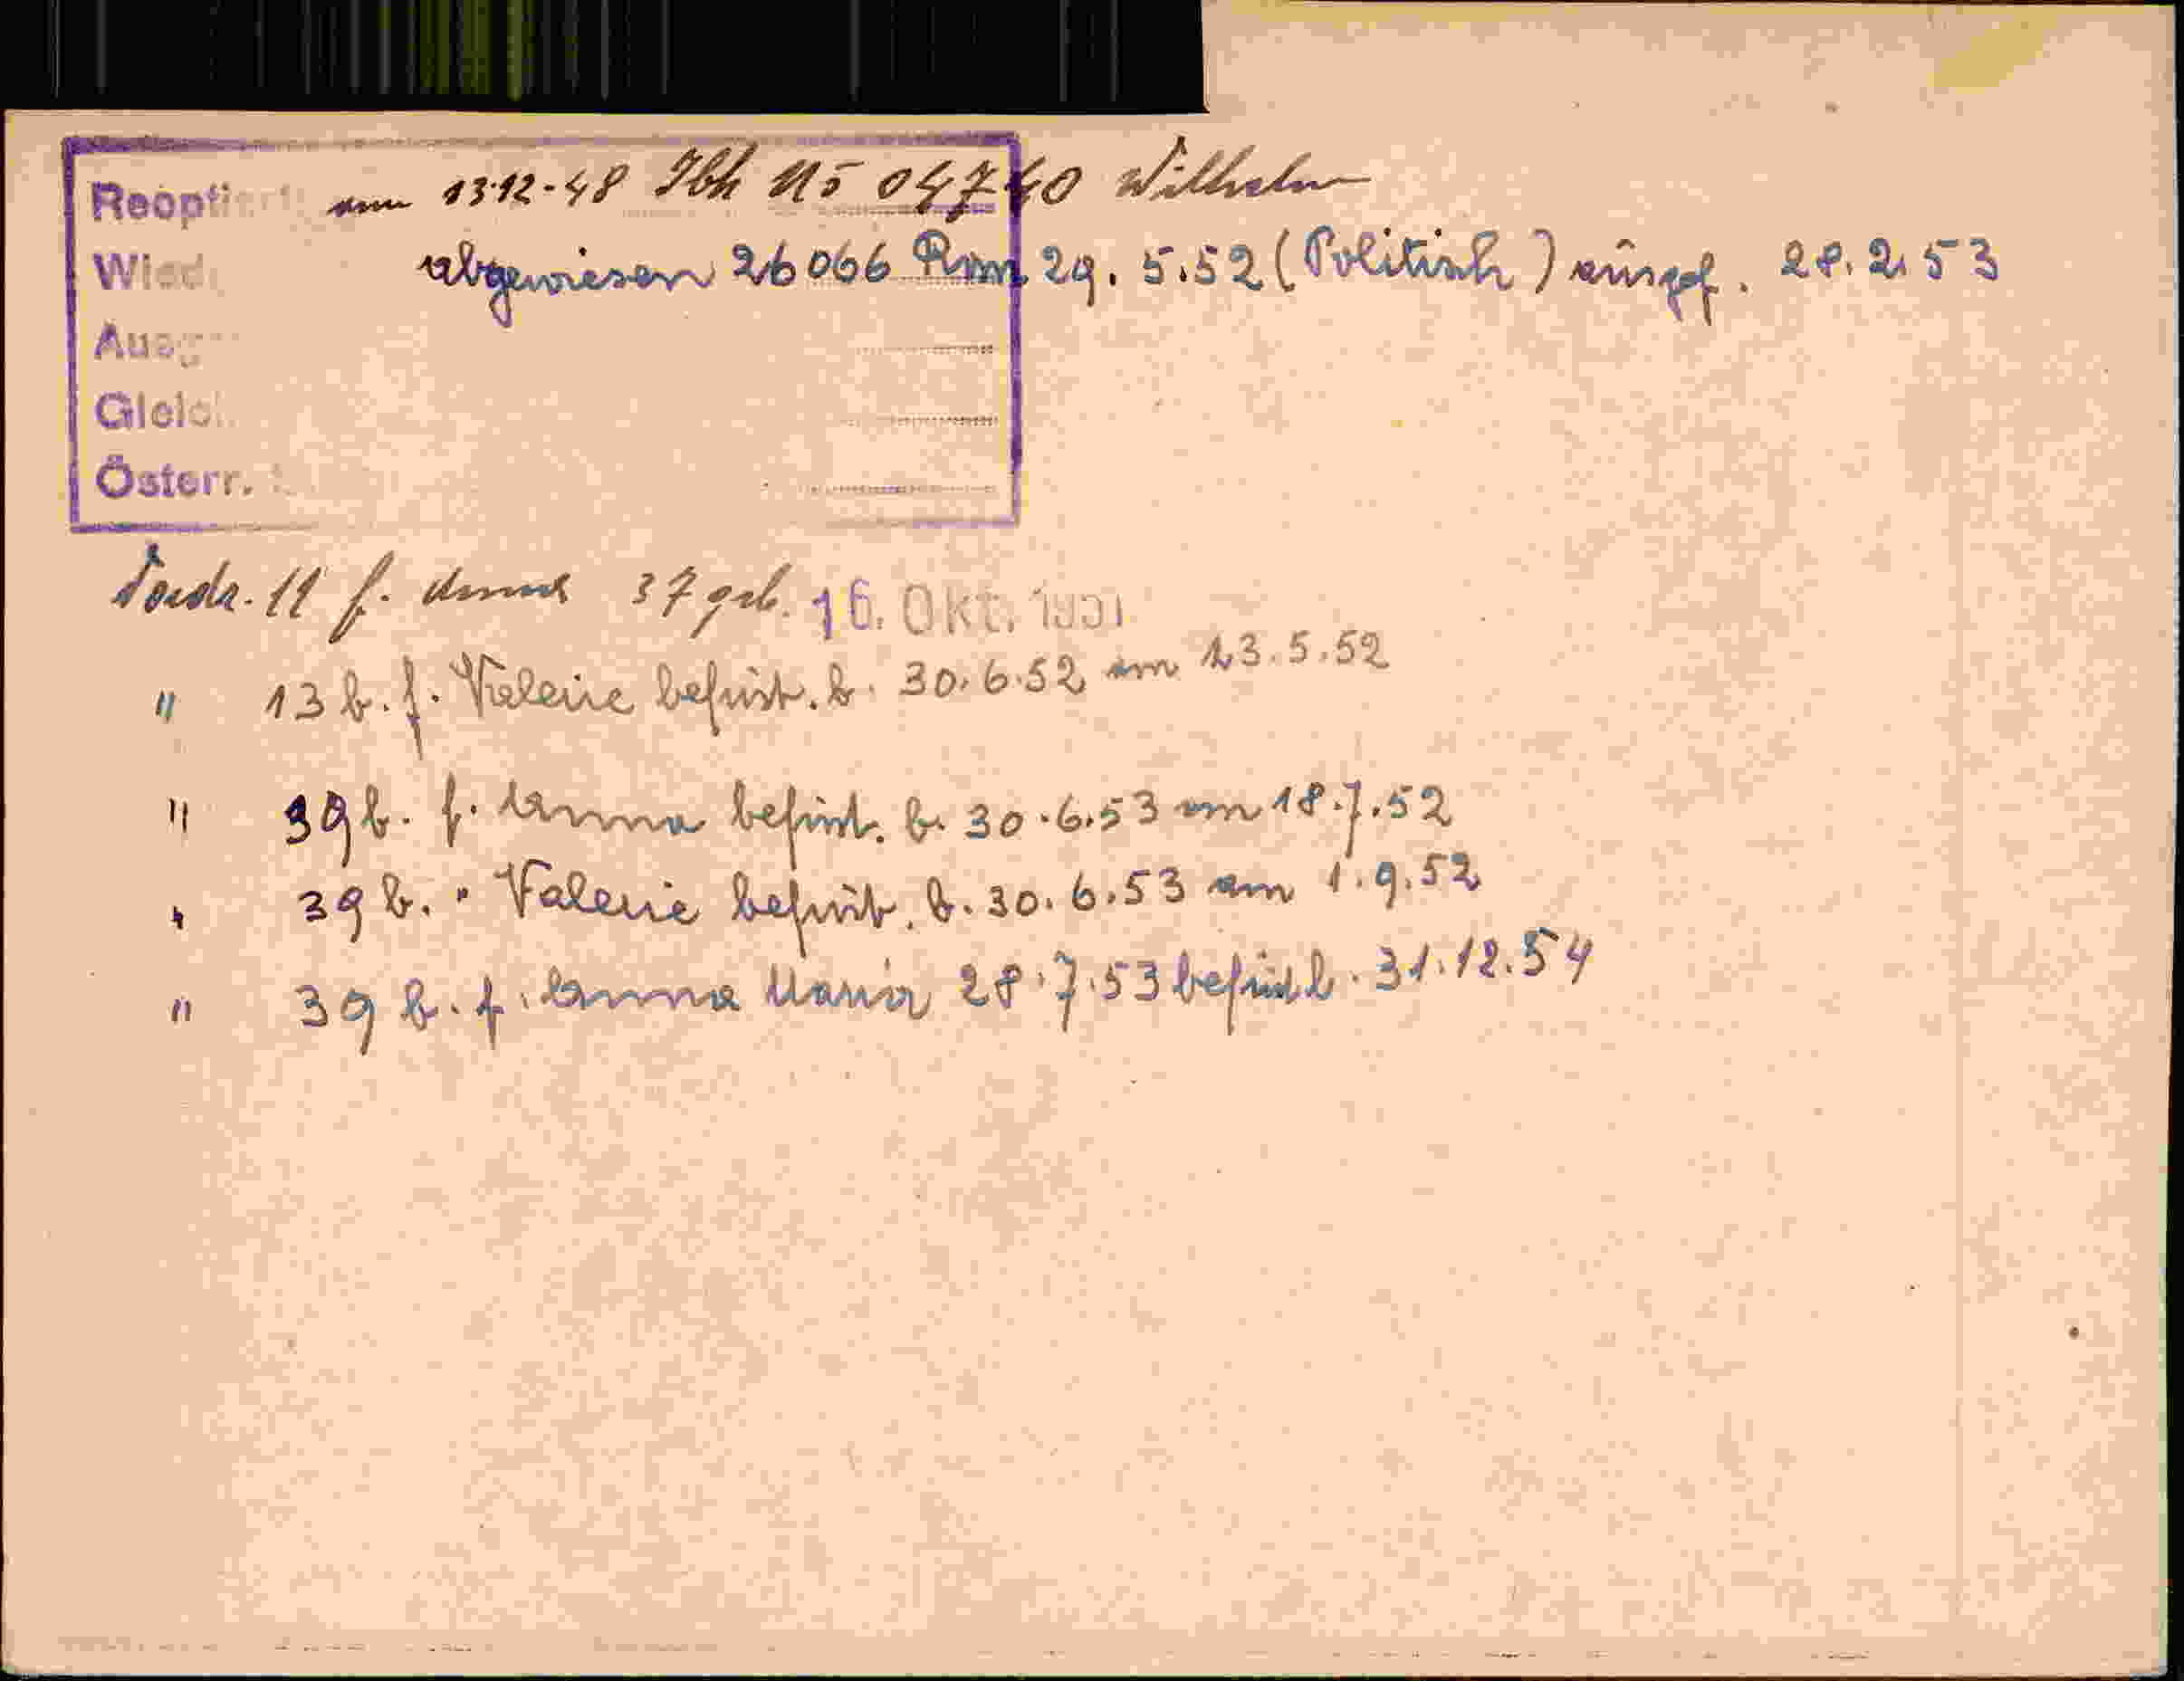 Reoptiert am 13.12.48 Ibk No 04740 Wilhelm
Wied abgewiesen 26066 Rom 29. 5.52 (Politisch) ausgef. 28.2.53
Ausg
Gleich
Österr.
Vordr. 11 f. Anna 37 geb. 16. Okt. 1951
" 13 b. f. Valerie befrist. b. 30.6.52 am 23.5.52
" 39 b. f. Anna befrist. b. 30.6.53 am 18.7.52
" 39 b. " Valerie befrist. b. 30.6.53 am 1.9.52
" 39 b. f. Anna Maria 28.7.53 befrist b. 31.12.54